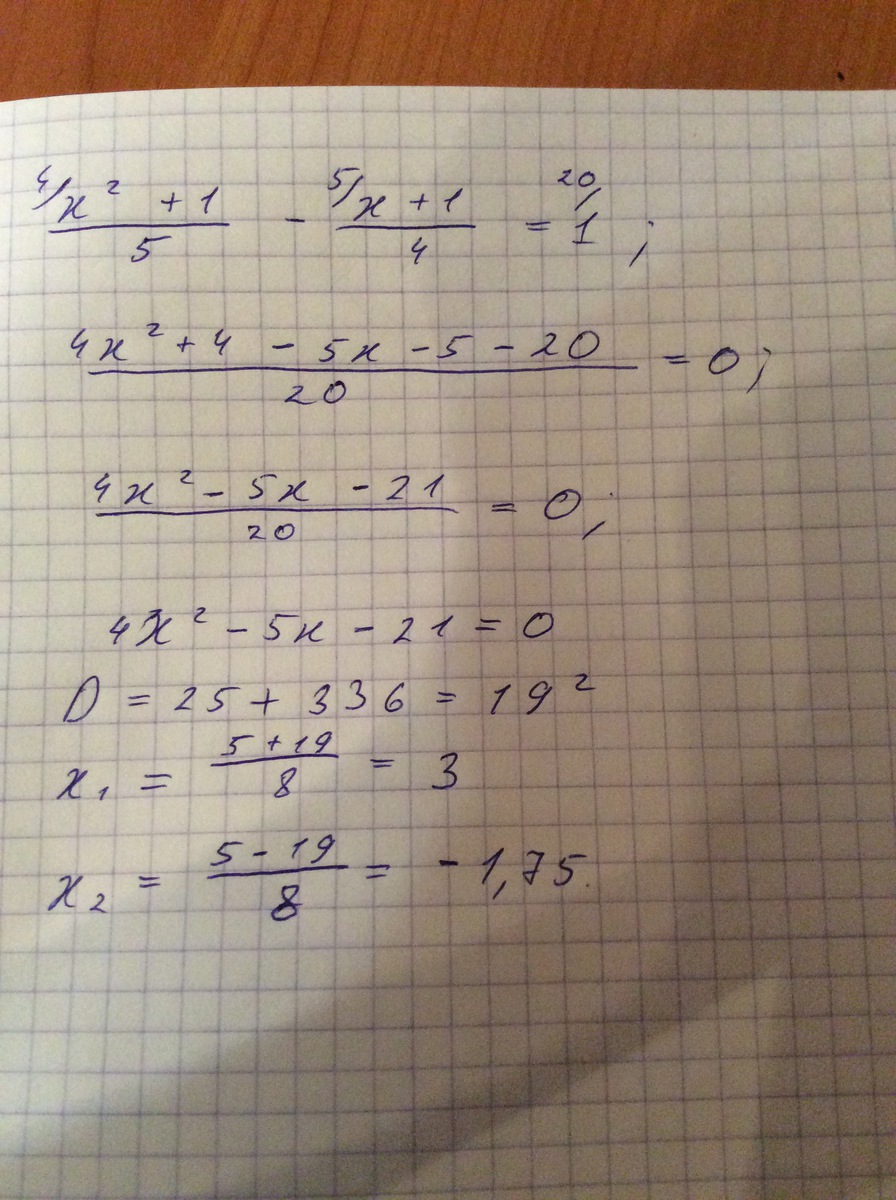 ⁴/x² + 1 / 5 - ⁵/x + 1 / 4 = ²⁰/1 ;
4x² + 4 - 5x - 5 - 20 / 20 = 0 ;
4x² - 5x - 21 / 20 = 0 ;
4x² - 5x - 21 = 0
D = 25 + 336 = 19²
x₁ = 5 + 19 / 8 = 3
x₂ = 5 - 19 / 8 = - 1,75.